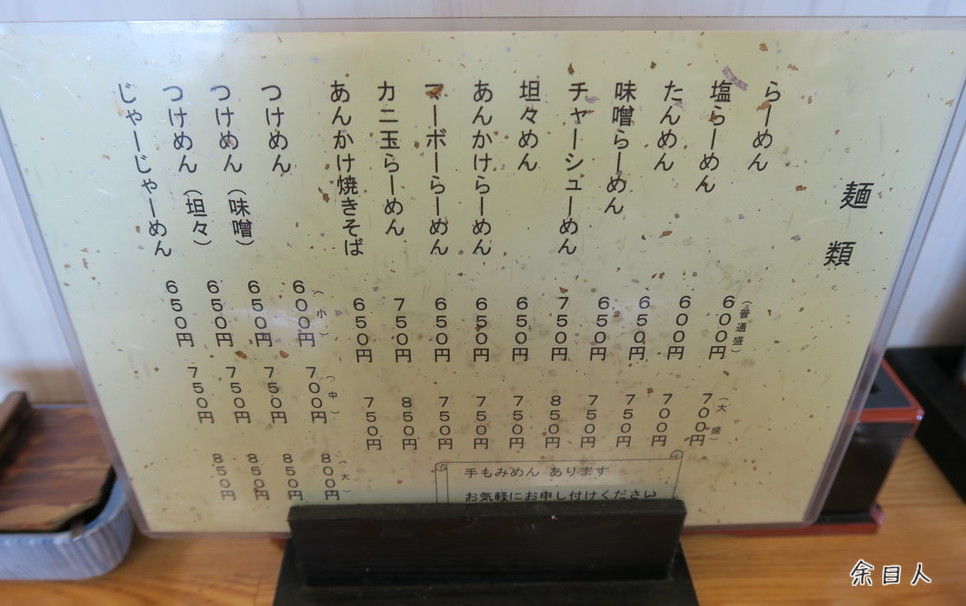 麺類
（普通盛）（大盛）
らーめん 600円 700円
塩らーめん 600円 700円
たんめん 650円 750円
味噌らーめん 650円 750円
チャーシューめん 750円 850円
坦々めん 650円 750円
あんかけらーめん 650円 750円
マーボーらーめん 650円 750円
カニ玉らーめん 750円 850円
あんかけ焼きそば 650円 750円
（小）（中）（大）
つけめん 600円 700円 800円
つけめん（味噌） 650円 750円 850円
つけめん（坦々） 650円 750円 850円
じゃーじゃーめん 650円 750円 850円
手もみめん あります
お気軽にお申し付けください
余目人